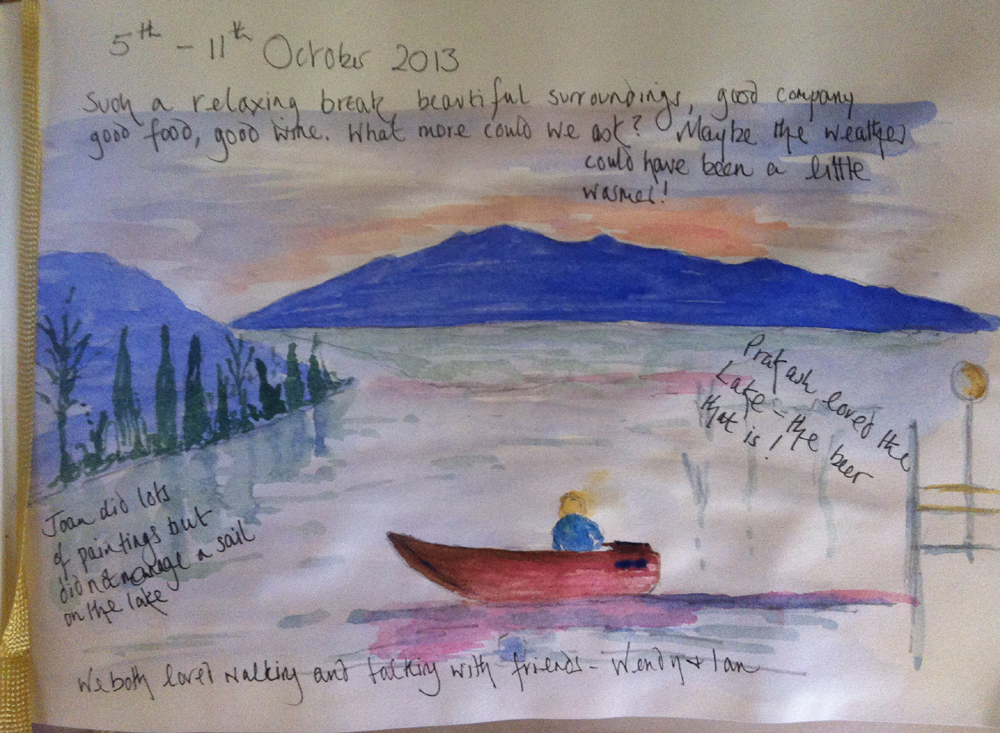 5th - 11th October 2013
Such a relaxing break beautiful surroundings, good company
good food, good wine. What more could we ask? Maybe the weather
could have been a little
warmer!
Prakash loved the
Lake - the beer
that is!
Joan did lots
of paintings but
didn't manage a sail
on the lake
We both loved walking and talking with friends - Wendy + Ian